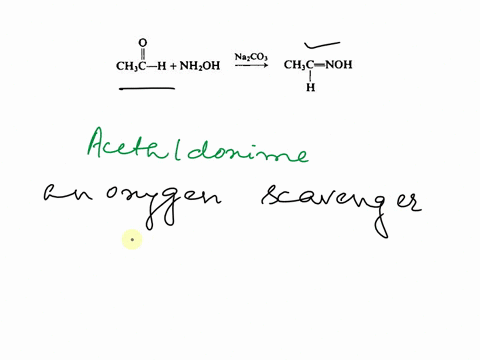 O
CH3C—H + NH2OH Na2CO3 → CH3C=NOH
H
Acethldonime
an oxygen scavenger